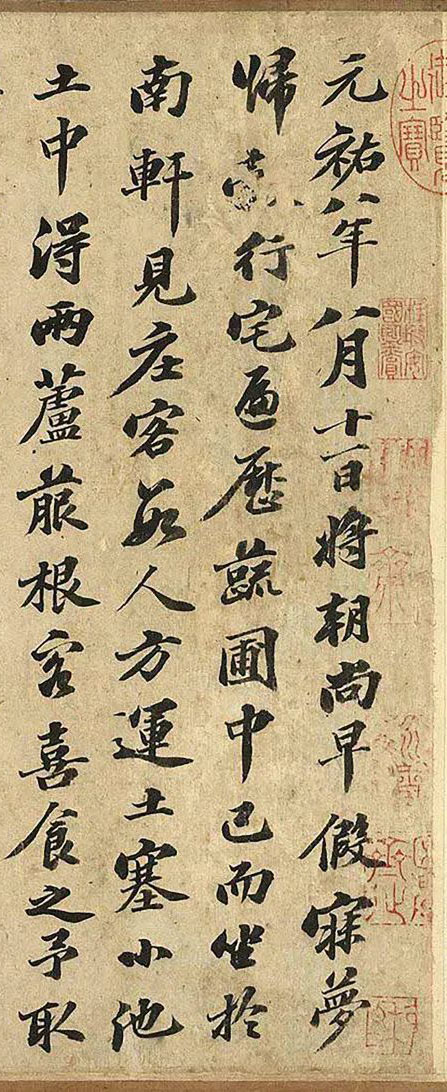 元祐八年八月十一日將朝尚早假寐夢
歸行宅遍歷蔬圃中已而坐於
南軒見庄客數人方運土塞小池
土中得兩蘆菔根客喜食之予取
之寶